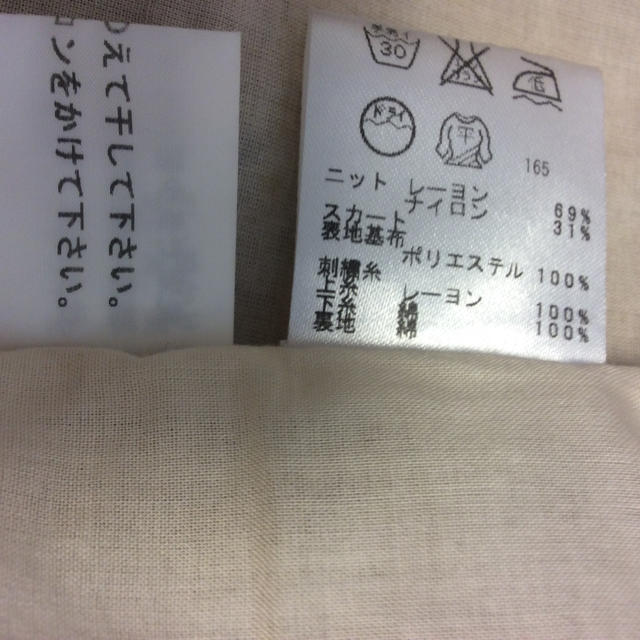 えて干して下さい。
ンをかけて下さい。
30
ドライ
平
165
ニット レーヨン 69%
ナイロン 31%
スカート
表地基布 ポリエステル 100%
刺繍糸
上糸 レーヨン 100%
下糸 綿 100%
裏地 綿